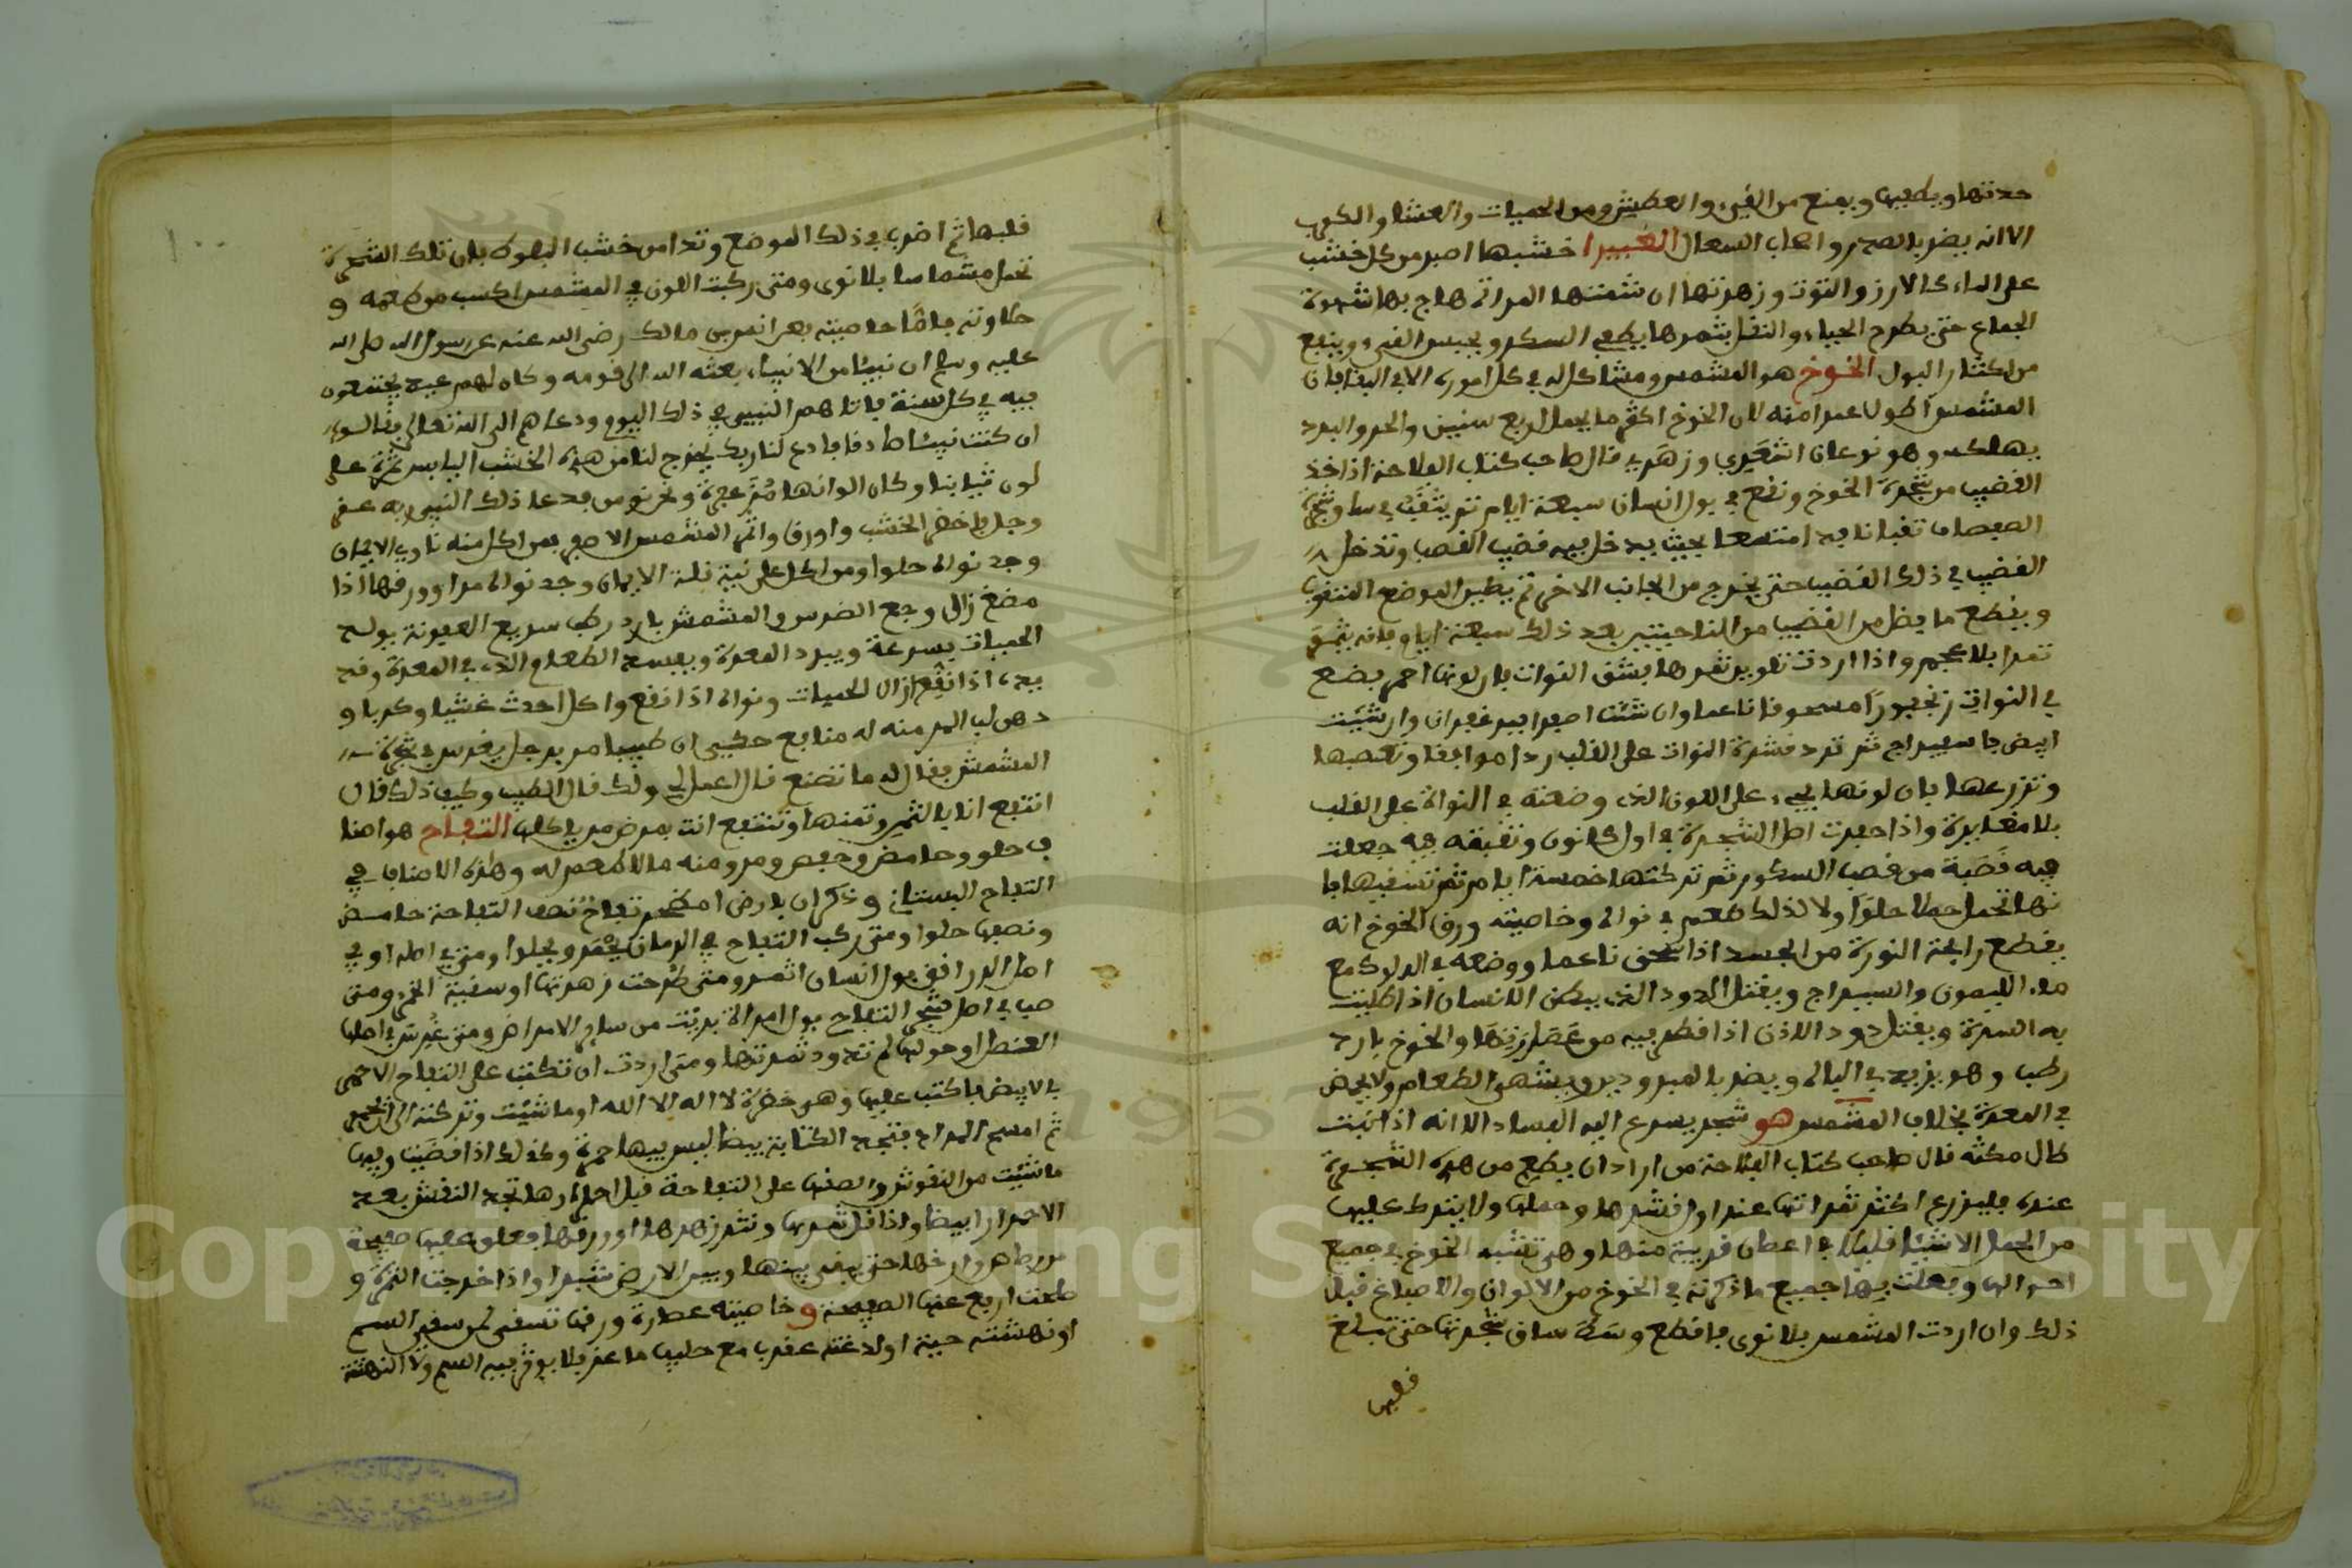 حدتها ويطعيها ويمنع من القيء والعطش ومن الحميات والعشا والكرب
الا انه يضر بالصدر واصحاب السعال الغبيرا خشبها اصبر من كل خشب
على الماء كالارز والتوت وزهرتها ان شمتها المراة هاج بها شهوة
الجماع حتى يطرح الحياء والنقل بثمرها يطفي السكر ويحبس القيء وينفع
من اكثار البول الخوخ هو المشمس ومشاكل له في كل اموره الا في البقا فان
المشمس اطول عمرا منه لان الخوخ اكثر ما يحمل اربع سنين والحر والبرد
يهلكه وهو نوعان اشعري وزهري قال صاحب كتاب الفلاحة اذا اخذ
القضيب من شجرة الخوخ ونقع في بول انسان سبعة ايام ثم يثقب في ساق شجرة
الصفصاف ثقبا نافدا متسعا بحيث يدخل فيه قضيب القصب وتدخل
القضيب في ذلك القضيب حتى يخرج من الجانب الاخر ثم يطين الموضع المثقوب
ويقطع ما يضل من القضيب من الناحيتين بعد ذلك سبعة ايام فانه يثمر
ثمرا بلا عجم واذا اردت تلوين ثمرها بشق النوات فان لونها احمر يضع
في النوات زنجفورا مسحوقا ناعما وان شئت اصفرا فبزعفران وان شئت
ابيض فاسفيداج ثم ترد قشرة النوات على القلب ردا موافقا وتعصبها
وتزرعها فان لونها يجيء على اللون الذي وضعته في النواة على القلب
بلا مغايرة واذا حفرت اصل الشجرة في اول كانون وثقبته فيه جعلت
فيه قصبة من قصب السكور ثم تركتها خمسة ايام ثم تسقيها فا
نها تحمل حملا حلوا ولا لذلك طعم في نواه وخاصيته ورق الخوخ انه
يقطع رايحة النورة من الجسد اذا سحق ناعما ووضعه في الدلوك مع
ماء الليمون والسبيداج ويقتل الدود الذي ببطن الانسان اذا طليت
به السرة ويقتل دود الاذن اذا قطر فيه من عصارتها والخوخ بارد
رطب وهو يزيد في الباه ويضر بالمبرودين ويشهي الطعام ولا يحمض
في المعدة بخلاف المشمس هو شجر يسرع اليه الفساد الا انه اذا نبت
طال مكثه قال صاحب كتاب الفلاحة من اراد ان يطلع من هذه الشجرة
عنده فليزرع اكثر ثمراتها عند اول قشرها وحملها ولا يترك عليها
من الحمل الا شيئا قليلا في اغصان قريبة منها وهي تشبه الخوخ في جميع
احوالها ويعلت فيها جميع ما ذكرته في الخوخ من الالوان والاصباغ قبل
ذلك وان اردت المشمس بلا نوى فاقطع وسط ساق شجرتها حتى تبلغ
قلبها
قلبها ثم اضرب في ذلك الموضع وتدا من خشب البلوط فان تلك الشجرة
تحمل مشماسا بلا نوى ومتى ركبت اللوز في المشمس اكتسب من طعمه و
حلاوته فاما خاصيته فعن انس بن مالك رضي الله عنه عن رسول الله صلى الله
عليه وسلم ان نبيئا من الانبياء بعثه الله الى قومه وكان لهم عيد يجتمعون
فيه في كل سنة فاتاهم النبي في ذلك اليوم ودعاهم الى الله تعالى فقالوا
ان كنت نبيئا صادقا فادع لنا ربك يخرج لنا من هذه الخشب اليابس ثمرة على
لون ثيابنا وكان الوانها مزعفرة ونحن نومن فدعا ذلك النبي ربه عز
وجل فاخضر الخشب واورق واثمر المشمس الاصفر فمن اكل منه ناوي الايمان
وجد نواه حلوا ومن اكل على نية قلة الايمان وجد نواه مرا وورقها اذا
مضغ زال وجع الضرس والمشمش بارد رطب سريع العفونة يولد
الحميات بسرعة ويبرد المعدة ويفسد الطعام الذي في المعدة وقد
يده اذا نقع ازال الحميات ونواه اذا نقع واكل احدث غشيا وكربا و
دهن لب المر منه له منافع حكي ان طبيبا مر برجل يغرس في شجرة
المشمش فقال له ما تصنع قال اعمل لي ولك قال الطبيب وكيف ذلك قال
انتفع انا بالثمر وثمنها وتنتفع انت بمرض من ياكلها التفاح هو اصنا
ف حلو وحامض وعفص ومر ومنه ما لا طعم له وهذه الاصناف في
التفاح البستاني وذكر ان بارض اصطخر تفاح نصف التفاحة حامض
ونصفها حلوا ومتى ركب التفاح في الرمان يحمر ويحلوا ومتى في اصله او في
اصل الدراقن بول انسان اثمر ومتى طرحت زهرتها او سقية الخمر ومتى
صب في اصل شجر التفاح بول امراة برئت من ساير الامراض ومتى غرس في اصلها
العنصل او حولها لم تدود ثمرتها ومتى اردت ان تكتب على التفاح الاحمر
في الابيض فاكتب عليها وهي خضرة لا اله الا الله او ما شئت وتركته الى ان يحمر
ثم امسح المداد فتجد الكتابة بيضا ليس فيها حمرة وكذلك اذا قصيت ورقها
ما شئت من النقوش والصقها على التفاحة قبل احمرارها تجد النقش بعد
الاحمرار ابيضا واذا قل ثمرها ونشر زهرها او ورقها فعلق عليها صفيحة
من رصاص وارخها حتى يبقى بينها وبين الارض شبرا واذا خرجت الثمرة و
صلحت ارفع عنها الصفيحة وخاصيته عصارة ورقها تسقى لمن سقي السم
او نهشته حية او لدغته عقرب مع حليب ماعز فلا يوثر فيه السم ولا النهشة